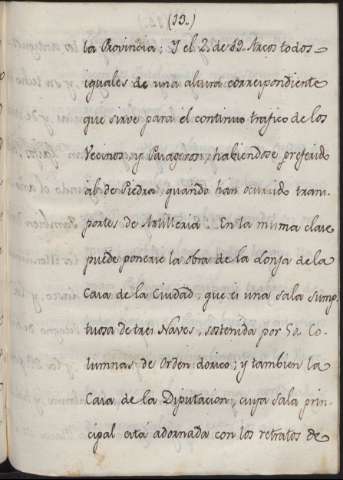 (19.)
la Provincia; Y el 2. de 19. Arcos todos
iguales de una altura correspondiente
que sirve para el continuo trafico de los
Vecinos, y Pasageros, habiendose preferido
al de Piedra quando han ocurrido trans-
portes de Artilleria. En la misma clase
puede ponerse la obra de la Lonja de la
Casa de la Ciudad, que es una sala sump-
tuosa de tres Naves, sostenida por Co-
lumnas de Orden dorico; y tambien la
Casa de la Diputacion, cuya sala prin-
cipal está adornada con los retratos de